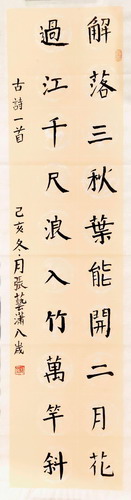 解落三秋葉能開二月花
過江千尺浪入竹萬竿斜
古詩一首
己亥冬月張藝瀟八歲